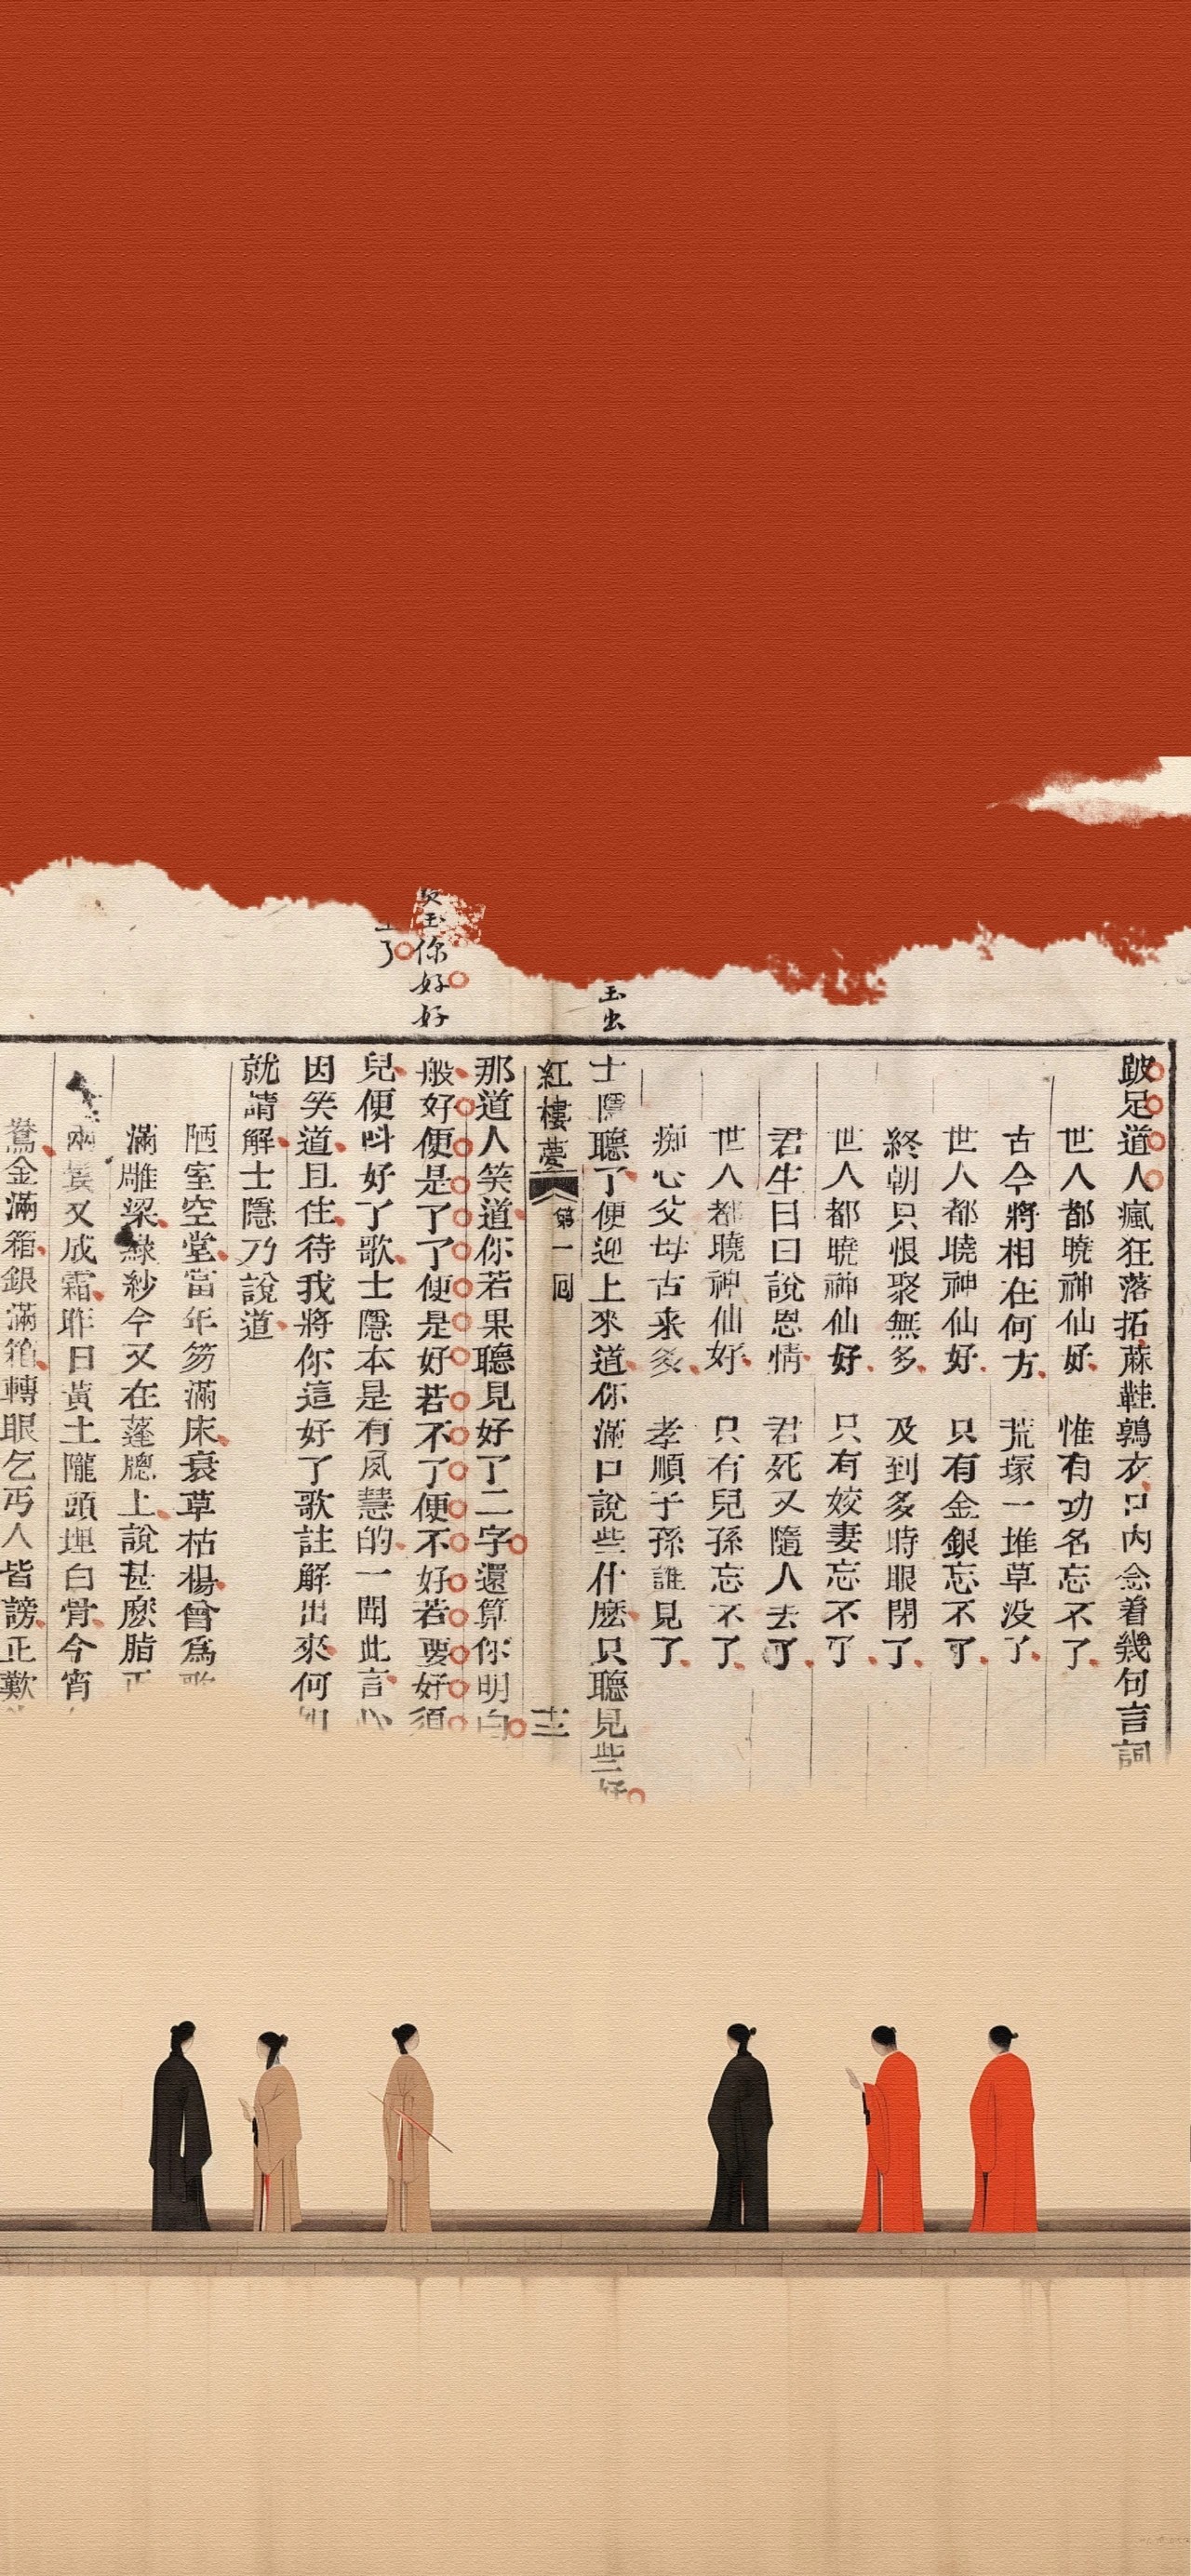 玉出
好玉你好好
了
跛足道人瘋狂落拓蔴鞋鶉衣口內念着幾句言詞
世人都曉神仙好 惟有功名忘不了
古今將相在何方 荒塚一堆草没了
世人都曉神仙好 只有金銀忘不了
終朝只恨聚無多 及到多時眼閉了
世人都曉神仙好 只有姣妻忘不了
君生日日說恩情 君死又隨人去了
世人都曉神仙好 只有兒孫忘不了
痴心父母古來多 孝順子孫誰見了
士隱聽了便迎上來道你滿口說些什麽只聽見些好
紅樓夢 第一回 十三
那道人笑道你若果聽見好了二字還算你明白
般好便是了了便是好若不了便不好若要好須
兒便呌好了歌士隱本是有夙慧的一聞此言心
因笑道且住待我將你這好了歌註解出來何如
就請解士隱乃說道
陋室空堂當年笏滿床衰草枯楊曾爲歌
滿雕梁綠紗今又在蓬牕上說甚麽脂正
兩鬂又成霜昨日黃土隴頭埋白骨今宵
鴦金滿箱銀滿箱轉眼乞丐人皆謗正歎